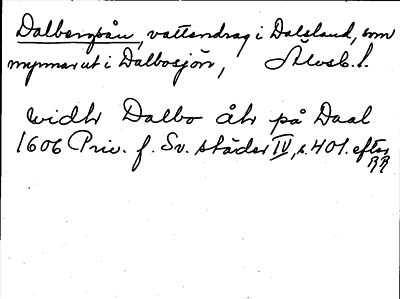 Dalbergsån, vattendrag i Dalsland, som
mynnar ut i Dalbosjön, Älvsb. l.
widh Dalbo åhr på Daal
1606 Priv. f. Sv. städer IV, s. 401. efter
RR